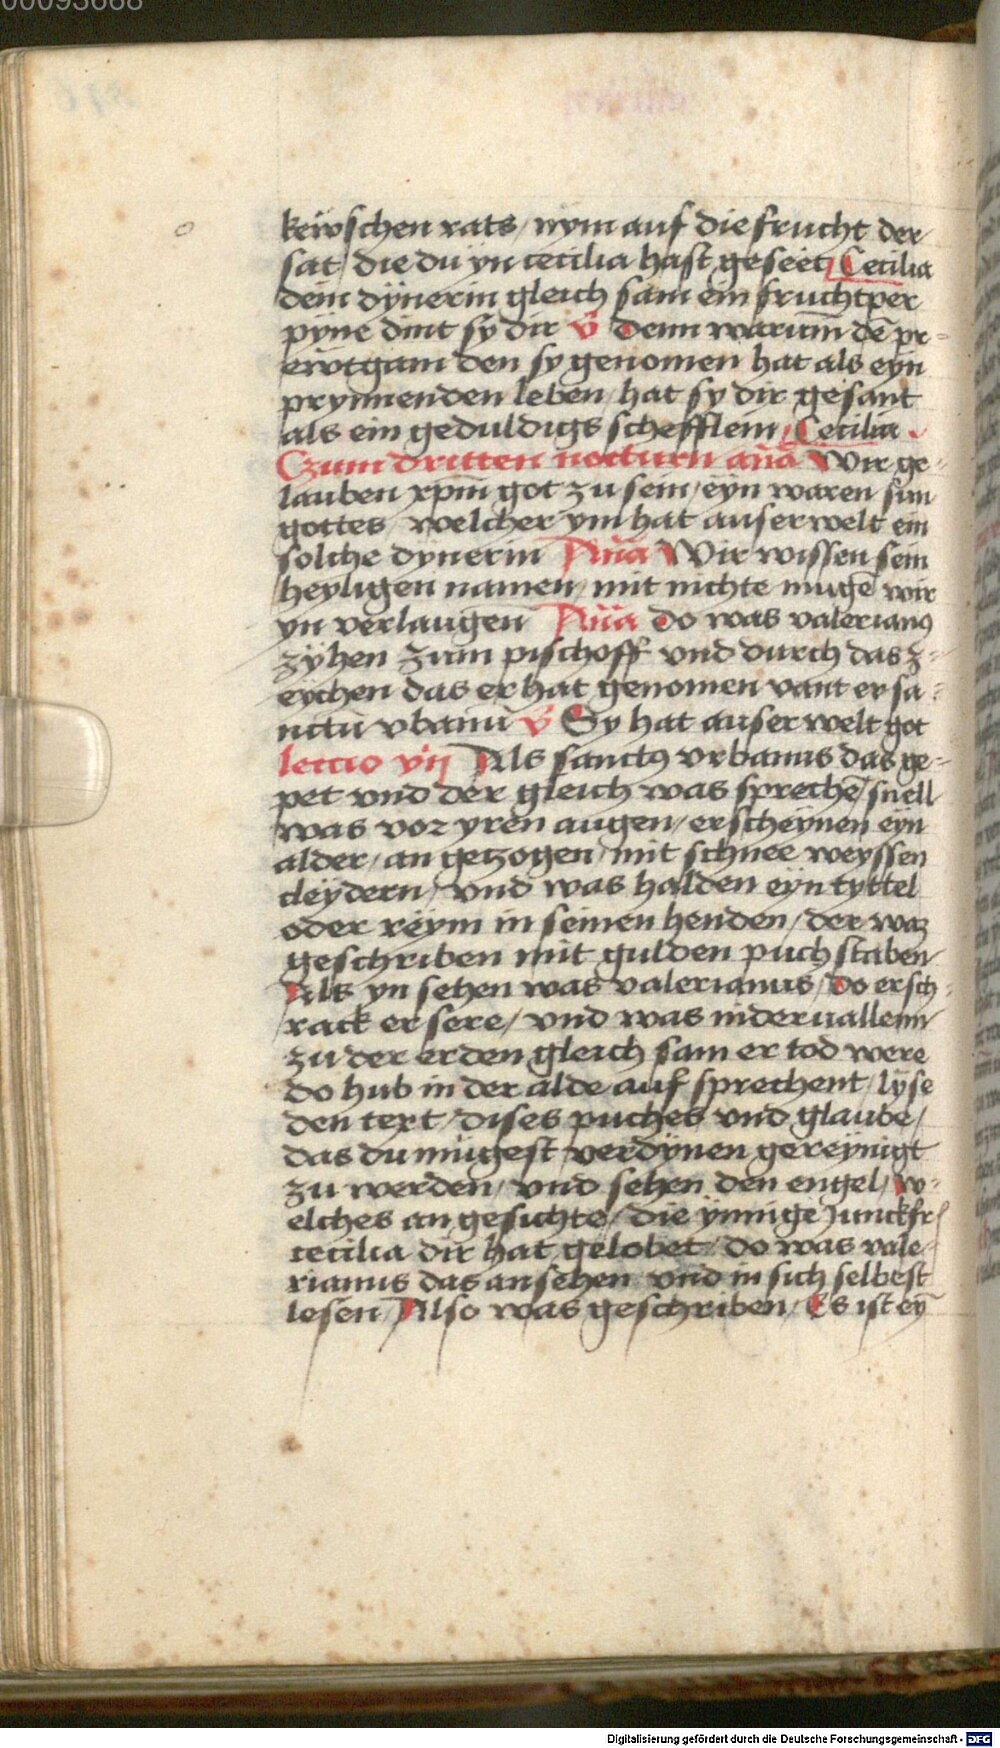 00093668
kewschen rats / nym auf die frucht der
sat / die du yn cecilia hast geseet / Cecilia
dein dÿnerin gleich sam ein fruchtper
pÿne dint sÿ dir v̄ Denn warum̄ dē pr-
ewtgam den sy genomen hat als eyn
prynnenden leben / hat sy dir gesant
als ein geduldigs schefflein / Cecilia
Czum dritten nocturn an̄a Wir ge-
lauben xp̄m got zu sein / eyn waren sun
gottes / welcher ym hat auserwelt ein
solche dynerin An̄a Wir wissen sein
heyligen namen / mit nichte mugē wir
yn verlaugen An̄a Do was valerianꝰ
zÿhen zum pischoff vnd durch das z-
eychen das er hat genomen vant er sa-
nctū vbanū v̄ Sy hat auserwelt got
lectio vij Als sanctꝰ vrbanus das ge-
pet vnd der gleich was sprechē / snell
was vor yren augen / erscheynen eyn
alder / an getzogen / mit schnee weyssen
cleÿdern / vnd was halden eÿn tyttel
oder reÿm in seinen henden / der waz
geschriben mit gulden puchstaben
Als yn sehen was valerianus / Do ersch-
rack er sere / vnd was nidervallenn
zu der erden gleich sam er tod were
do hub in der alde auf sprechent / lÿse
den text / dises puches vnd glaube /
das du mugest verdÿnen gereÿnigt
zu werden / vnd sehen den engel / w-
elches an gesichte / die ÿnnige Junckfr
cecilia dir hat gelobet / do was vale-
rianus das ansehen vnd in sich selbest
lesen / Also was geschriben / Es ist eȳ
Digitalisierung gefördert durch die Deutsche Forschungsgemeinschaft - DFG